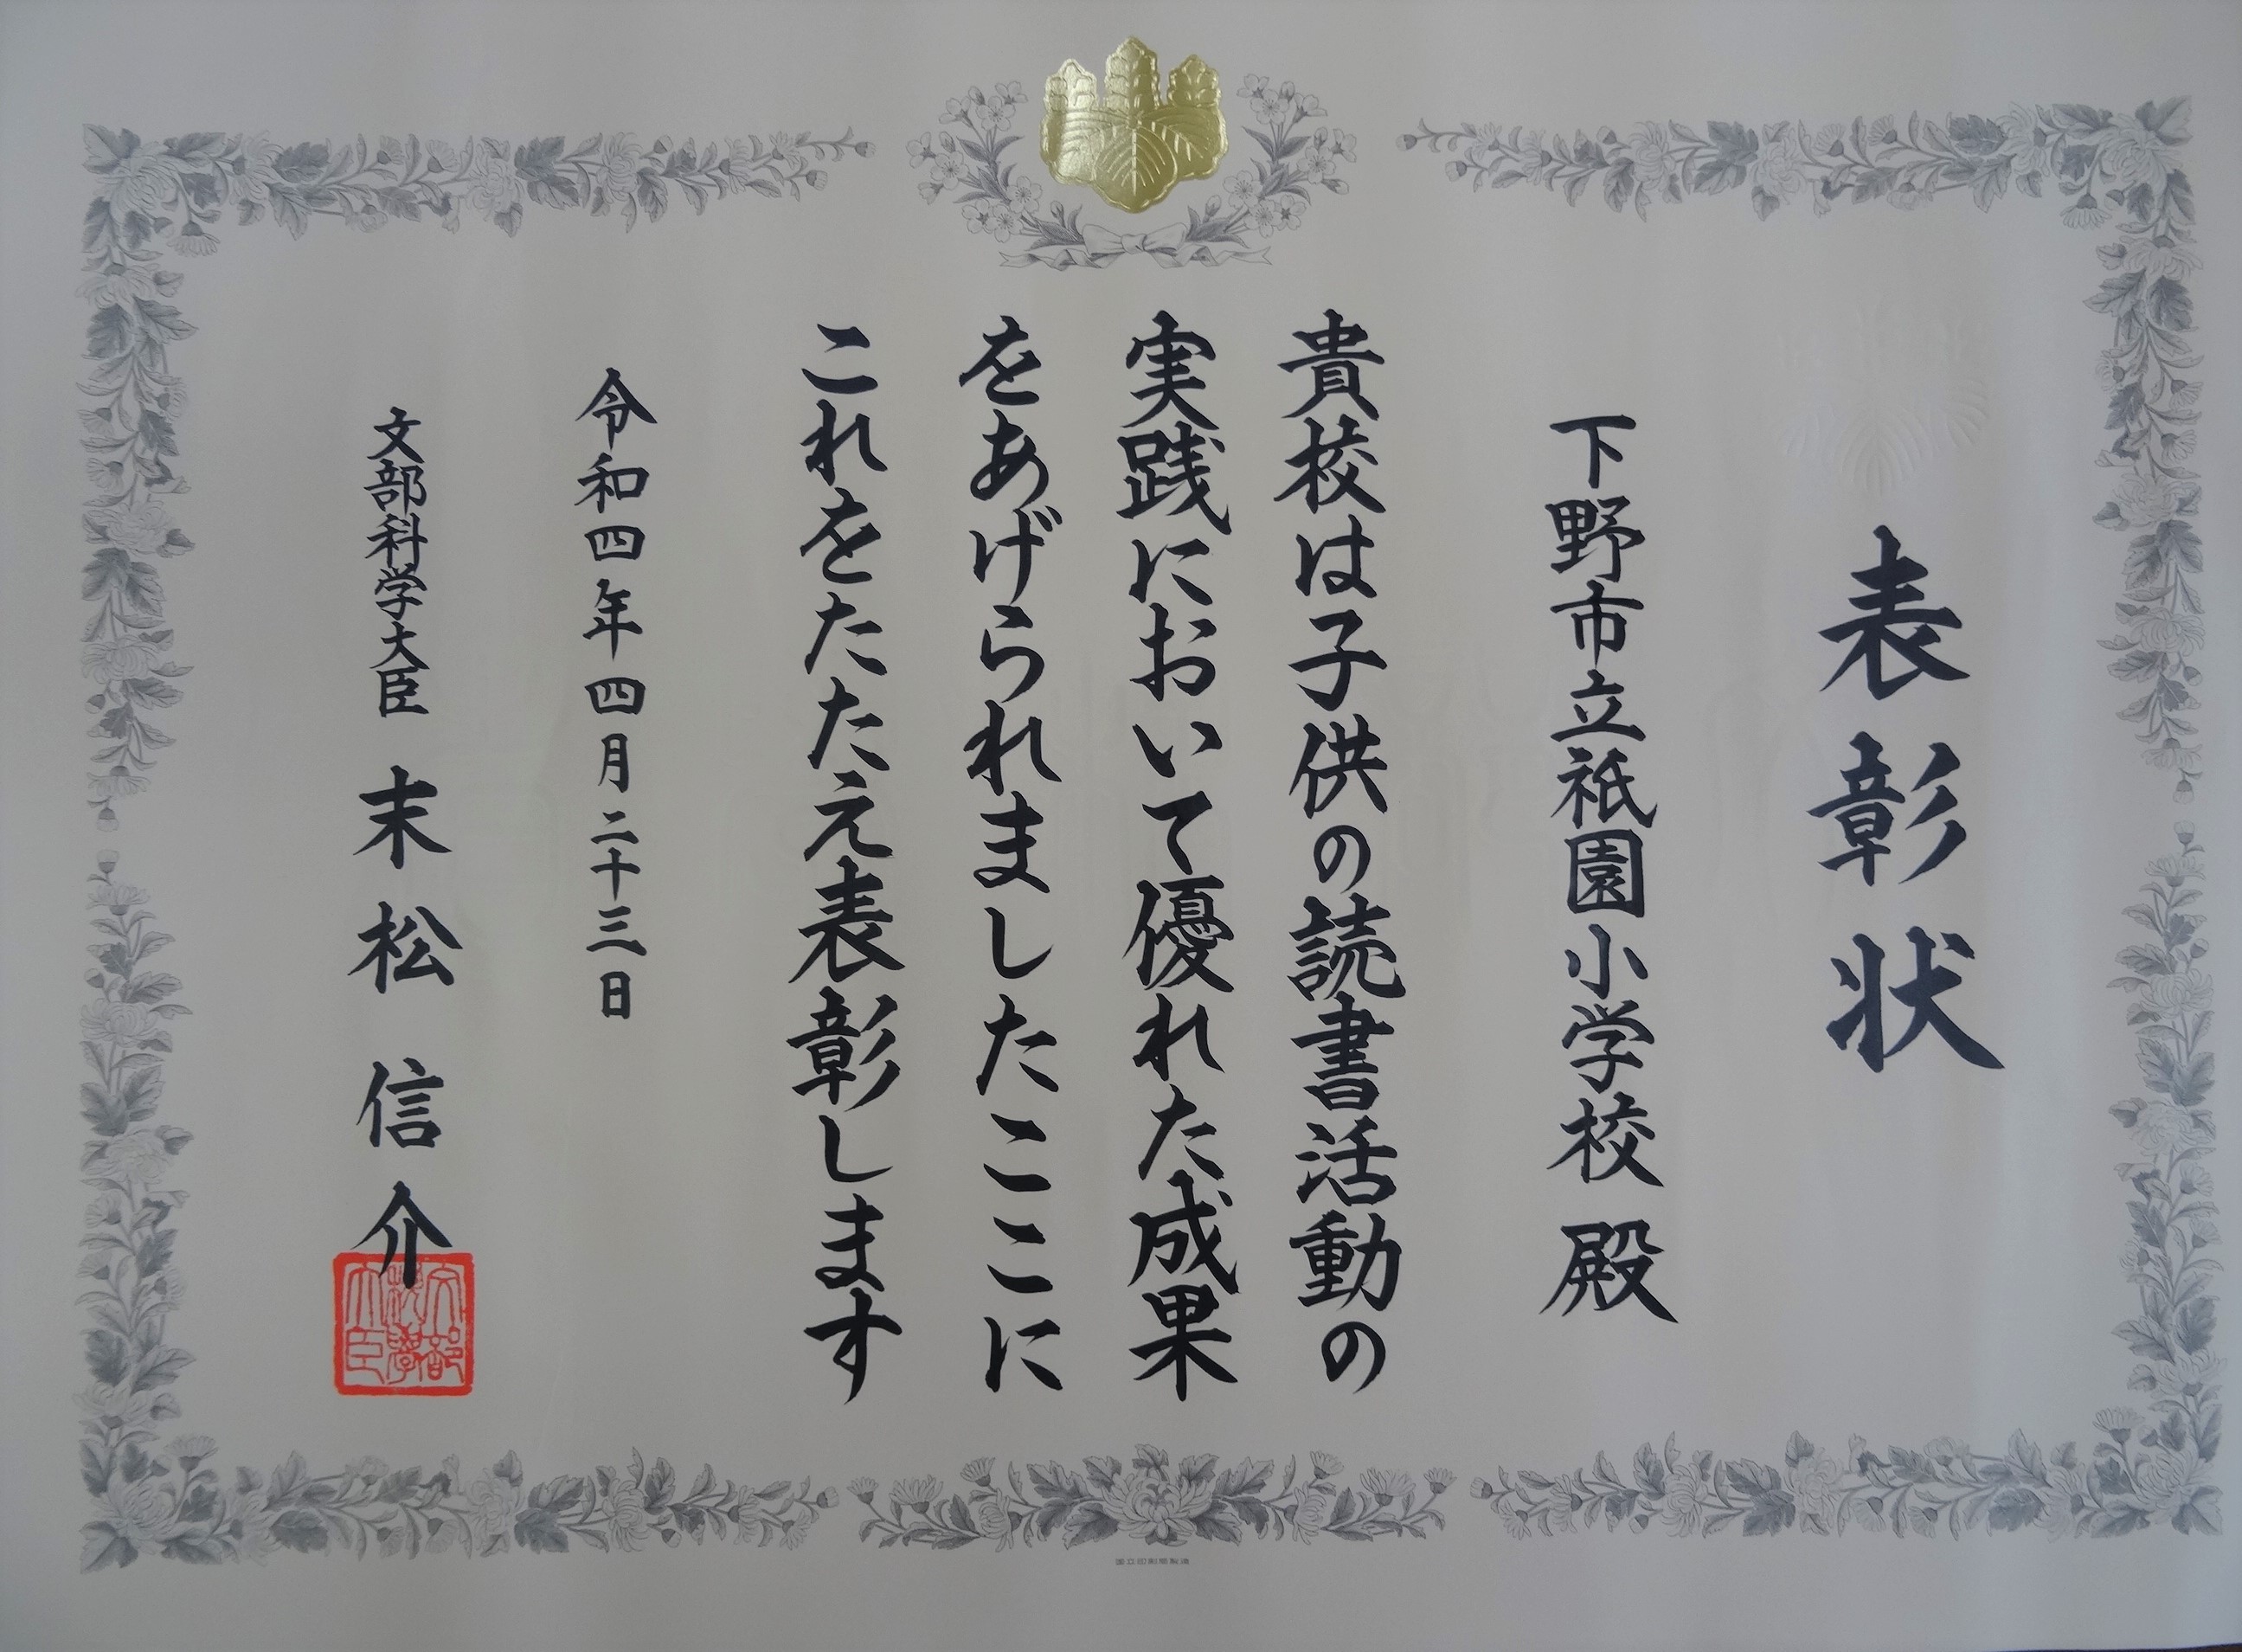 表彰状
下野市立祇園小学校 殿
貴校は子供の読書活動の
実践において優れた成果
をあげられましたここに
これをたたえ表彰します
令和四年四月二十三日
文部科学大臣 末松信介
文部科学大臣
国立印刷局製造